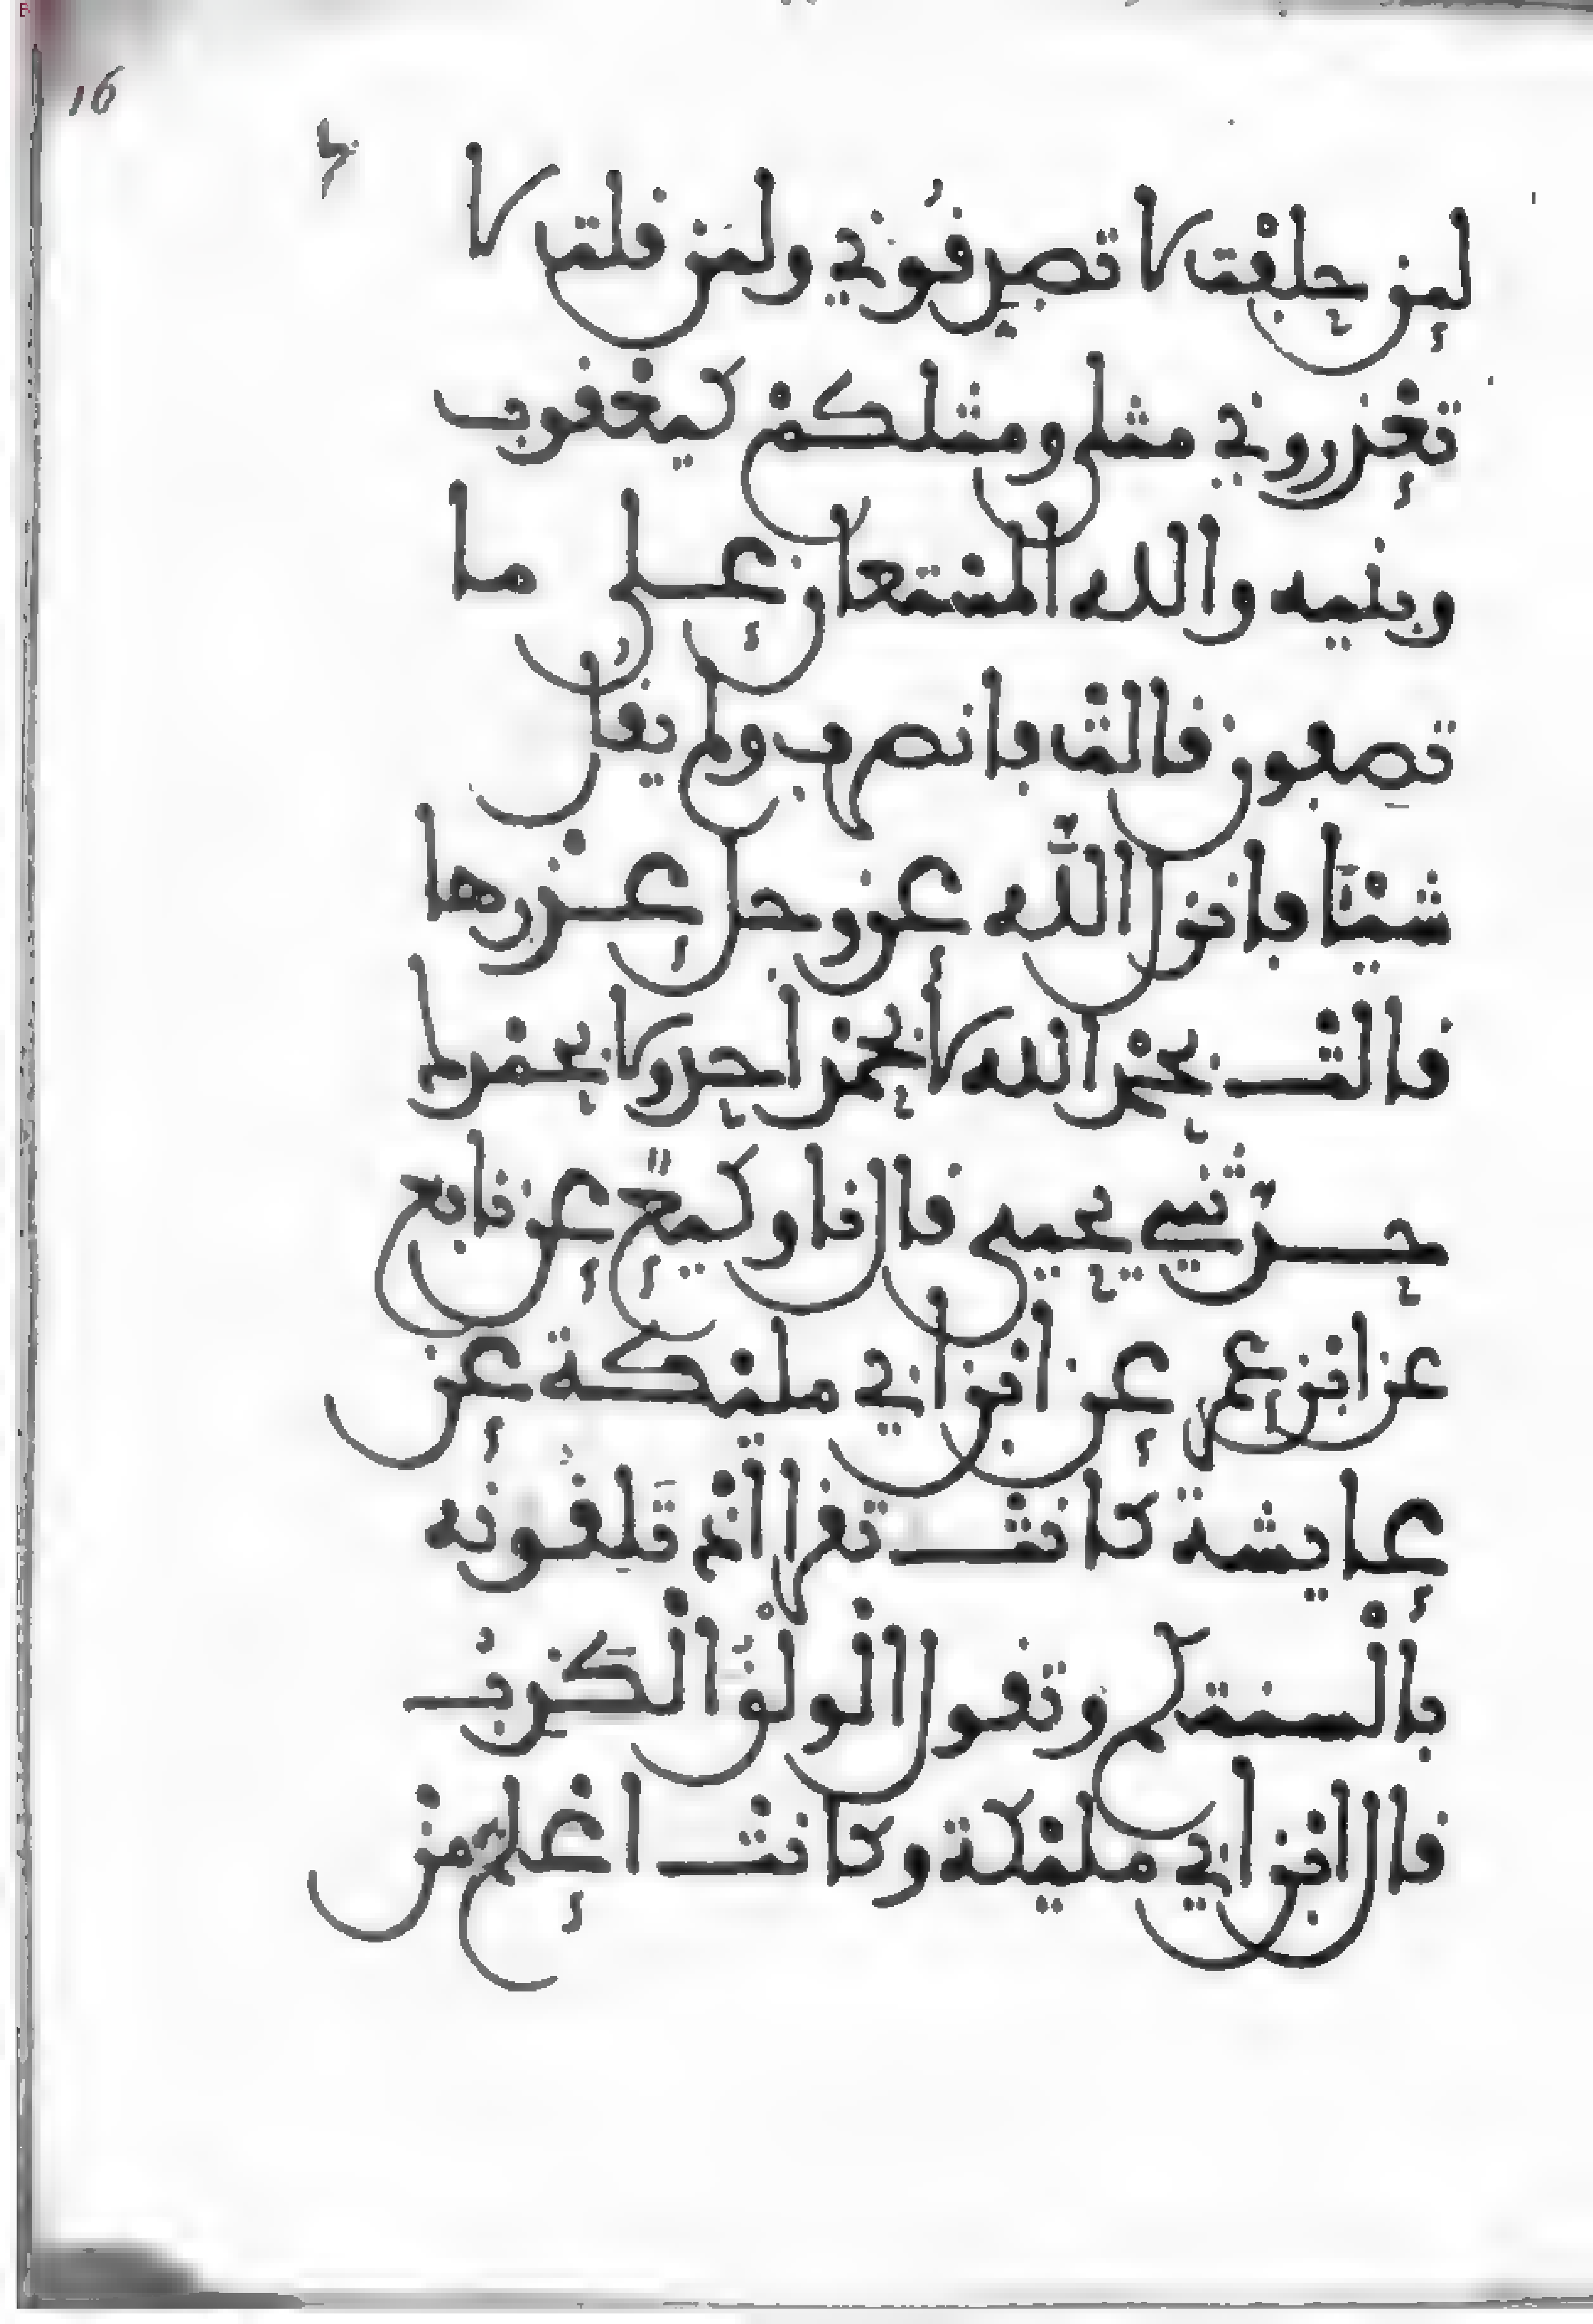 16
لين حلفت لا تصدقوني ولين قلت لا
تعذروني مثلي ومثلكم كيعقوب
وبنيه والله المستعان على ما
تصفون قالت فانصرف ولم يقل
شيئا فانزل الله عز وجل عذرها
قالت بحمد الله لا بحمد احد ولا بحمدك
حدثني يحيى قال نا وكيع عن نافع
عن ابن عمر عن ابن ابي مليكة عن
عايشة كانت تقرا اذ تلقونه
بالسنتكم وتقول الولق الكذب
قال ابن ابي مليكة وكانت اعلم من